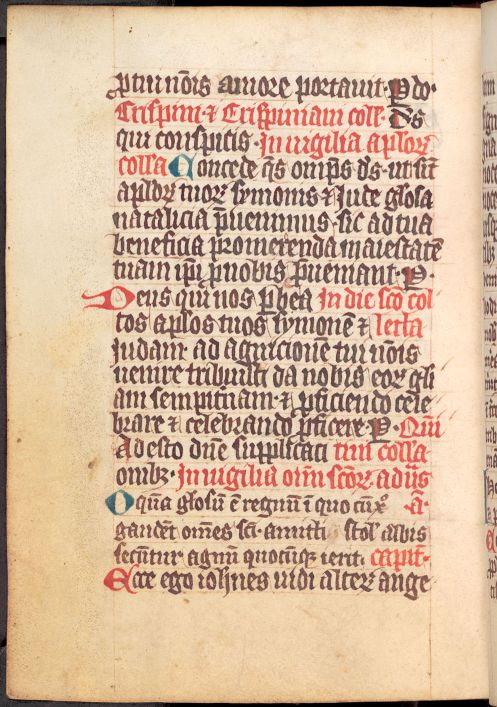 ptui nōis amore portauit · P do·
Crispini ⁊ Crispiniani coll᷑ Ds
qui conspicis · In uigilia aplorꝝ
collā Concede q̄s omp̄s ds · ut sič
aplorꝝ tuorꝝ symonis ⁊ Jude glosa
natalicia p̄uenimus · sic ad tua
beneficia promerenda maiestatē
tuam ip̄i p nobis p̄ueniant · P ·
Deus qui nos p beā In die sc̄o col
tos aplos tuos symonē ⁊ lecta
iudam ad agnicionē tui nōis
uenire tribuisti da nobis eorꝝ gli
am sempit̄nam · ⁊ pficiendo cele
brare ⁊ celebrando pficere · P · Qui
Ad esto dn̄e supplicati tim collā
onibꝫ · In uigilia oīm sc̄orꝝ ad uīs
O qūa glosū ē regnū ī quo cū xº · A᷑ ·
gaudēt om̄es sc̄i · amicti stol᷑ albis
secūntur agnū quocūqꝫ ierit · capit᷑·
Ecce ego ioh̄nes uidi alterꝝ ange